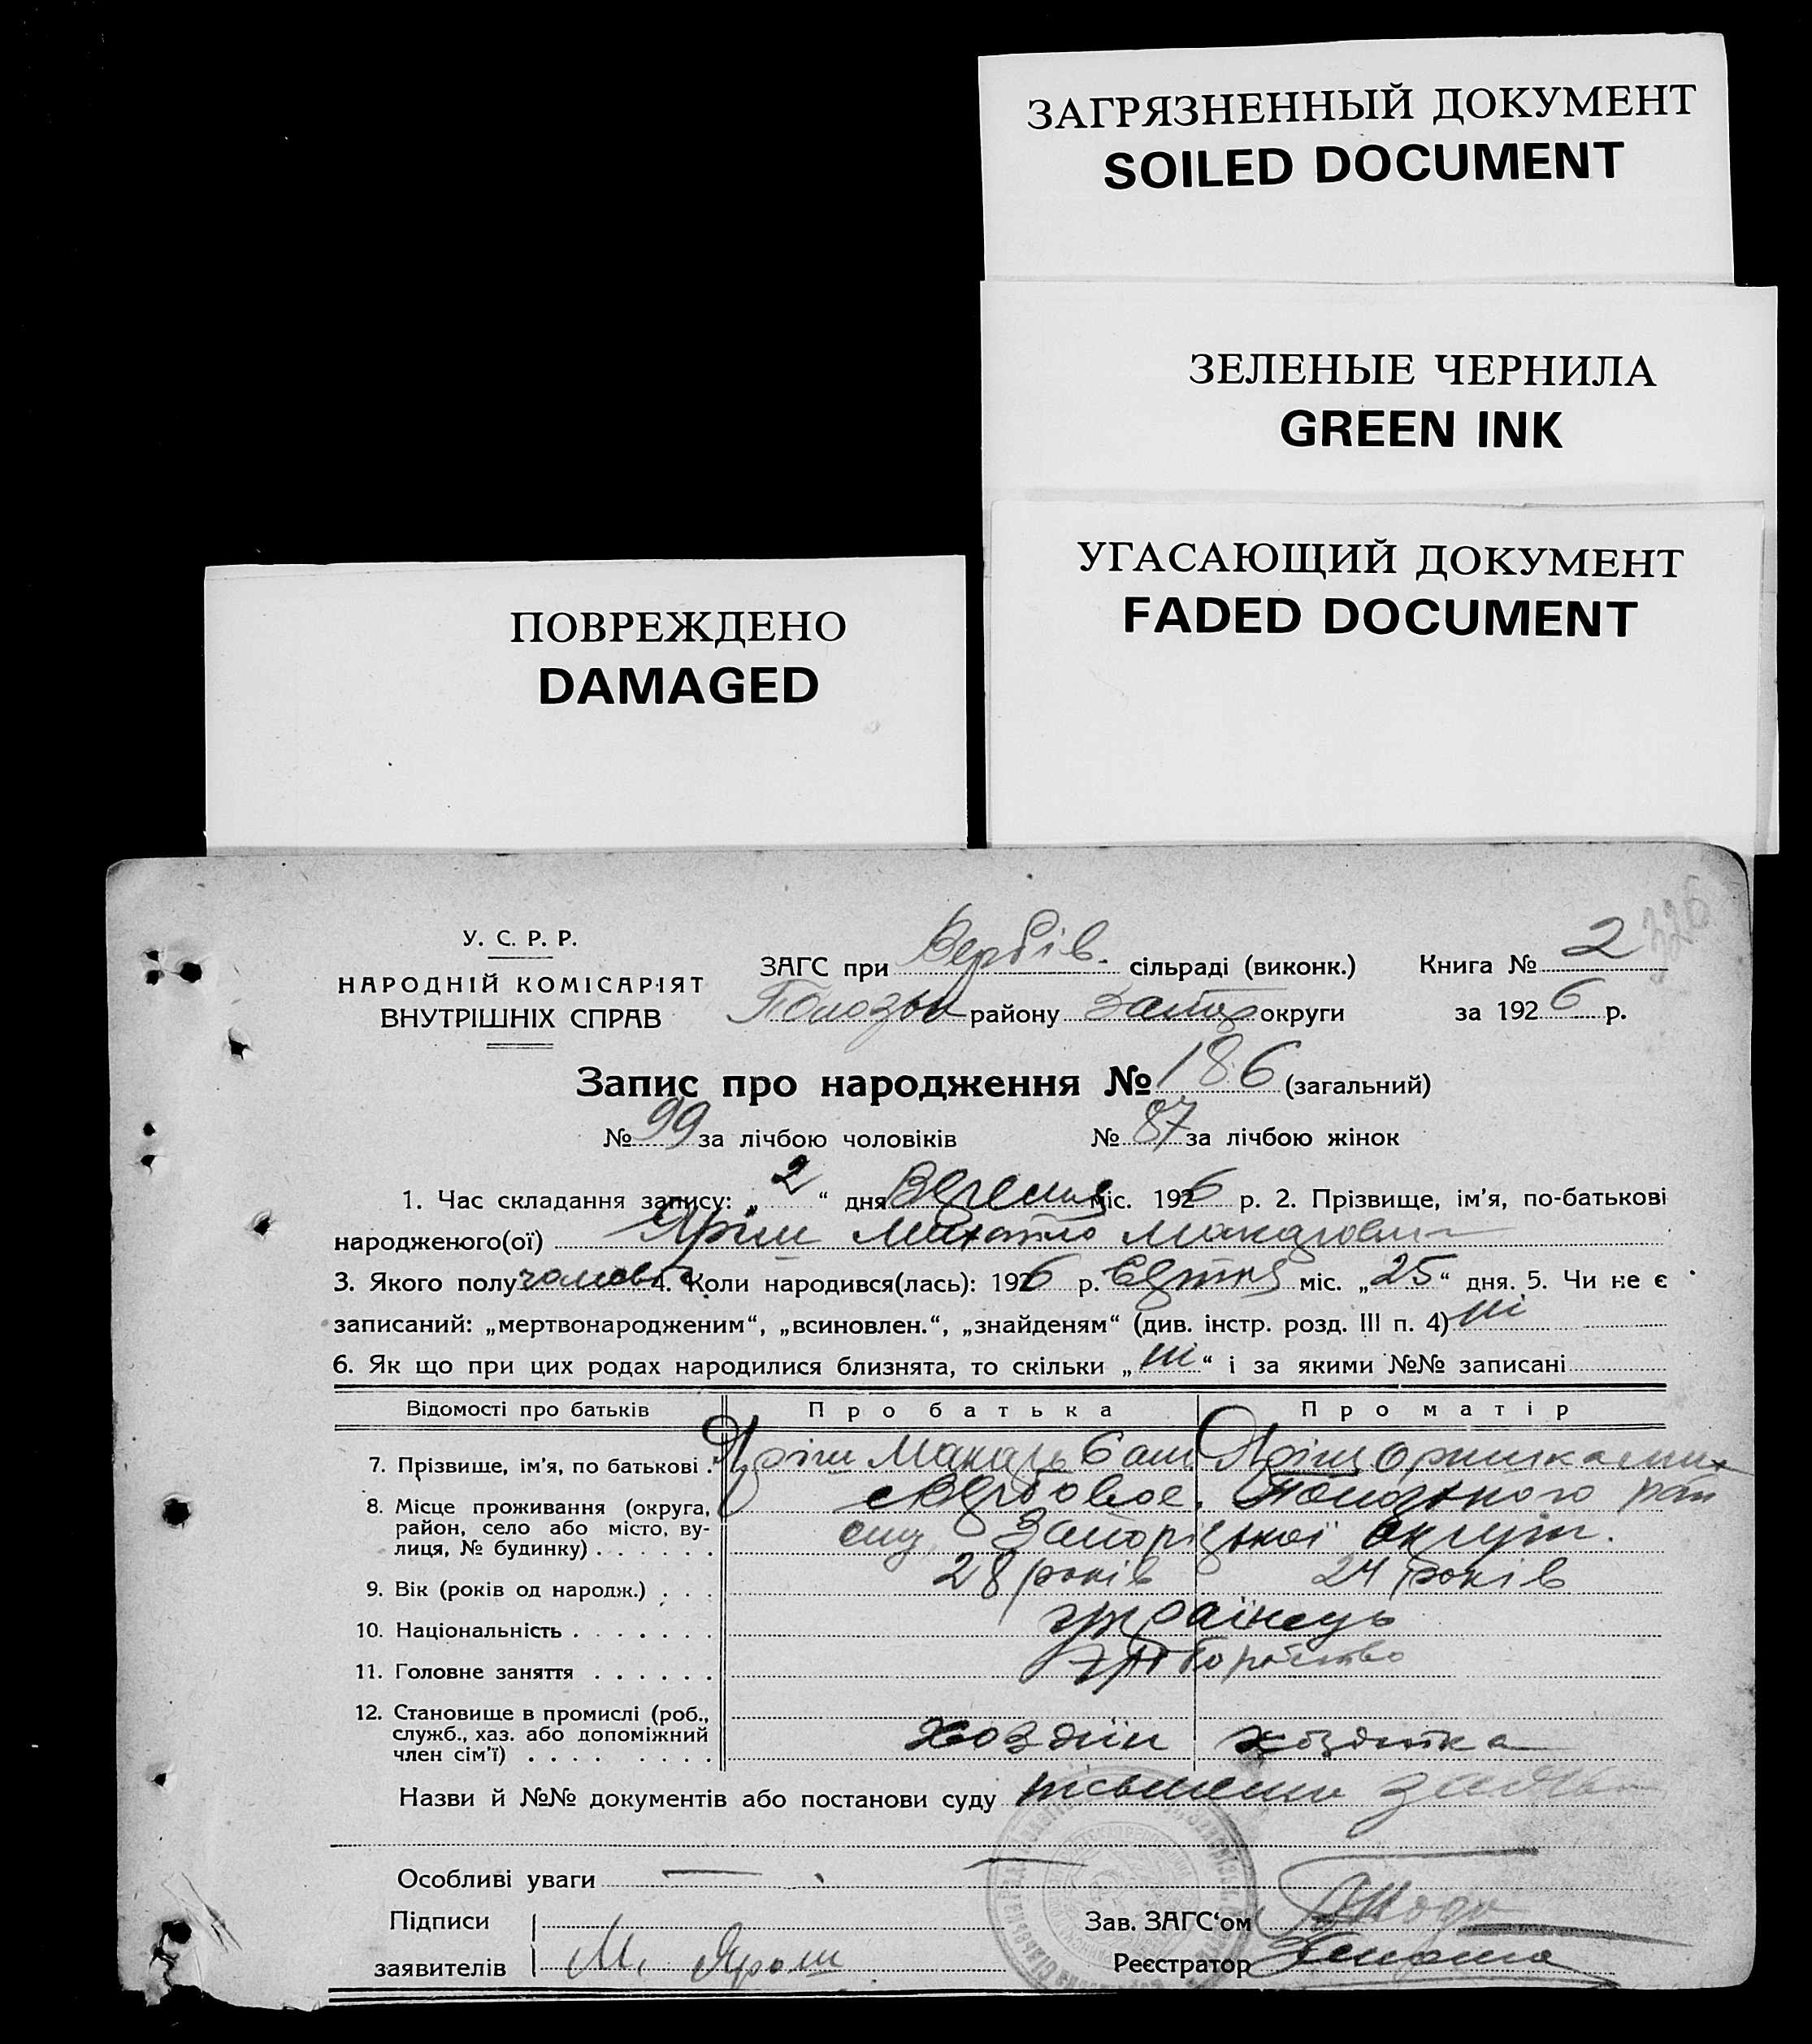 ЗАГРЯЗНЕННЫЙ ДОКУМЕНТ
SOILED DOCUMENT
ЗЕЛЕНЫЕ ЧЕРНИЛА
GREEN INK
УГАСАЮЩИЙ ДОКУМЕНТ
FADED DOCUMENT
ПОВРЕЖДЕНО
DAMAGED
У. С. Р. Р.
НАРОДНІЙ КОМІСАРІЯТ
ВНУТРІШНІХ СПРАВ
ЗАГС при Вербів. сільраді (виконк.) Книга № 2
району округи за 1926 р.
Запис про народження № 186 (загальний)
№ 99 за лічбою чоловіків № 87 за лічбою жінок
1. Час складання запису: „2“ дня Вересня міс. 1926 р. 2. Прізвище, ім'я, по-батькові
народженого(ої) Яріш Михайло Макарович
3. Якого полу чоловіч. 4. Коли народився(лась): 1926 р. міс. „25“ дня. 5. Чи не є
записаний: „мертвонародженим“, „всиновлен.“, „знайденям“ (див. інстр. розд. III п. 4) ні
6. Як що при цих родах народилися близнята, то скільки „ні“ і за якими №№ записані
Відомості про батьків Про батька Про матір
7. Прізвище, ім'я, по батькові . Яріш Макарь Яріш Оришка
8. Місце проживання (округа, район, село або місто, вулиця, № будинку) . . . . . . с Вербовое. Пологського рай
Запорізької округи.
9. Вік (років од народж.) . . . 28 років 24 років
10. Національність . . . . . . . українець
11. Головне заняття . . . . . .
12. Становище в промислі (роб., служб., хаз. або допоміжний член сім'ї) . . . . . . . . . хозяїн хозяйка
Назви й №№ документів або постанови суду
Особливі уваги —
Підписи
заявителів М. Ярош
Зав. ЗАГС'ом
Реєстратор